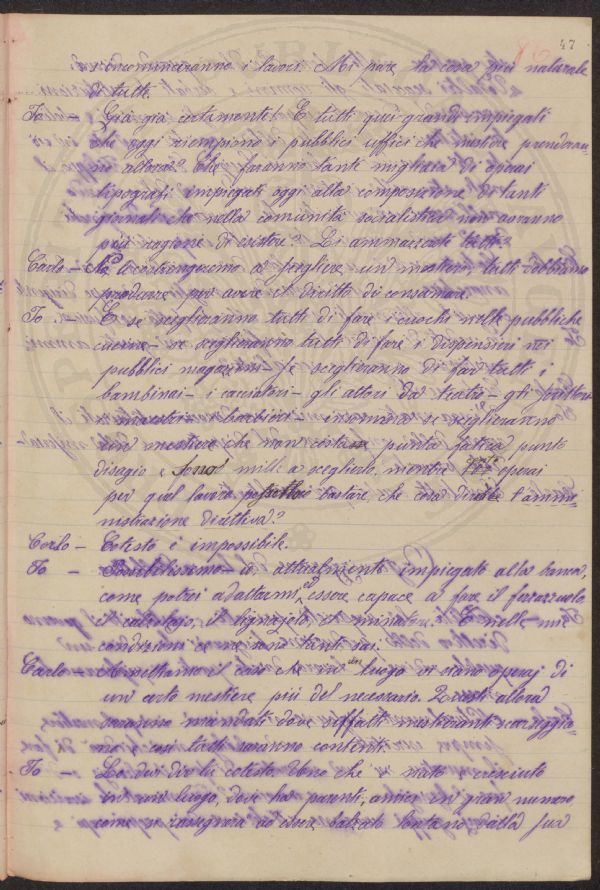 47
ricominceranno i lavori. Mi pare la cosa più naturale
di tutte.
Io — Già già certamente! E tutti quei grandi impiegati
che oggi riempiono i pubblici uffici che mestiere prenderan
no allora? Che faranno tante migliaia di operai
tipografi impiegati oggi alla composizione di tanti
giornali che nella comunità socialistica non avranno
più ragione di esistere? Li ammazzate tutti?
Carlo — No costringiamo a scegliere un mestiere, tutti dobbiamo
produrre per avere il diritto di consumare.
Io — E se sceglieranno tutti di fare i cuochi nelle pubbliche
cucine — se sceglieranno tutti di fare i dispensieri nei
pubblici magazzini — se sceglieranno di far tutti i
bambinai — i cacciatori — gli attori da teatro — gli scrittori
barbieri — insomma se sceglieranno
un mestiere che non costa punta fatica punto
disagio e sono mille a sceglierlo, mentre operai
per quel lavoro bastare, che cosa direbbe l'ammi
nistrazione direttiva?
Carlo — Cotesto è impossibile.
Io — Possibilissimo — io attualmente impiegato alla banca,
come potrei adattarmi, ed essere capace a fare il
il calzolajo, il legnajolo, il minatore. E nelle mie
condizioni ce ne sono tanti sai.
Carlo — Ammettiamo il caso che in un luogo vi siano operaj di
un certo mestiere più del necessario. Questi allora
saranno mandati dove siffatti mestieranti scarseggia
no e così tutti saranno contenti.
Io — Lo dici tu cotesto. Uno che è nato e cresciuto
in un luogo, dove ha parenti, amici in gran numero,
come si rassegnerà ad essere balzato lontano dalla sua